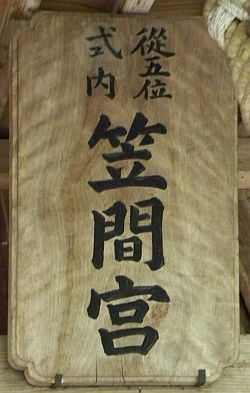 從五位
式内
笠間宮